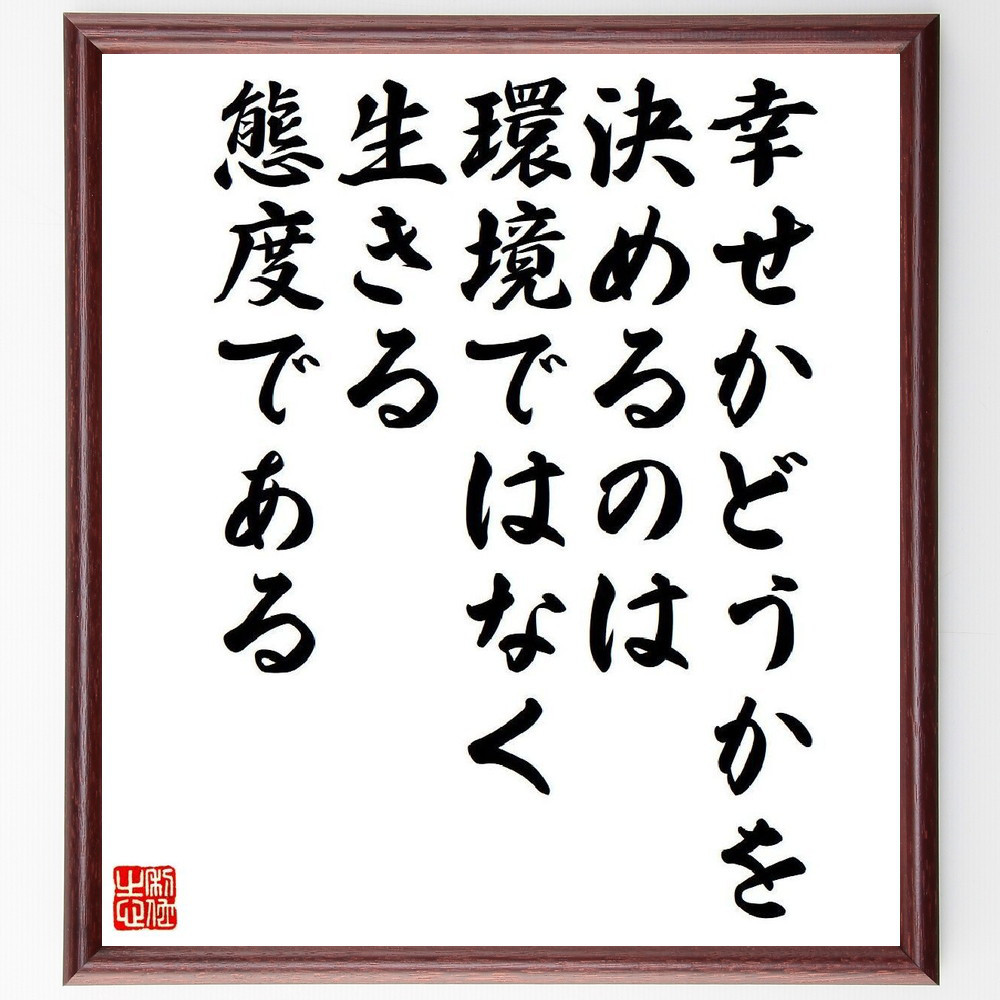 幸せかどうかを
決めるのは
環境ではなく
生きる
態度である